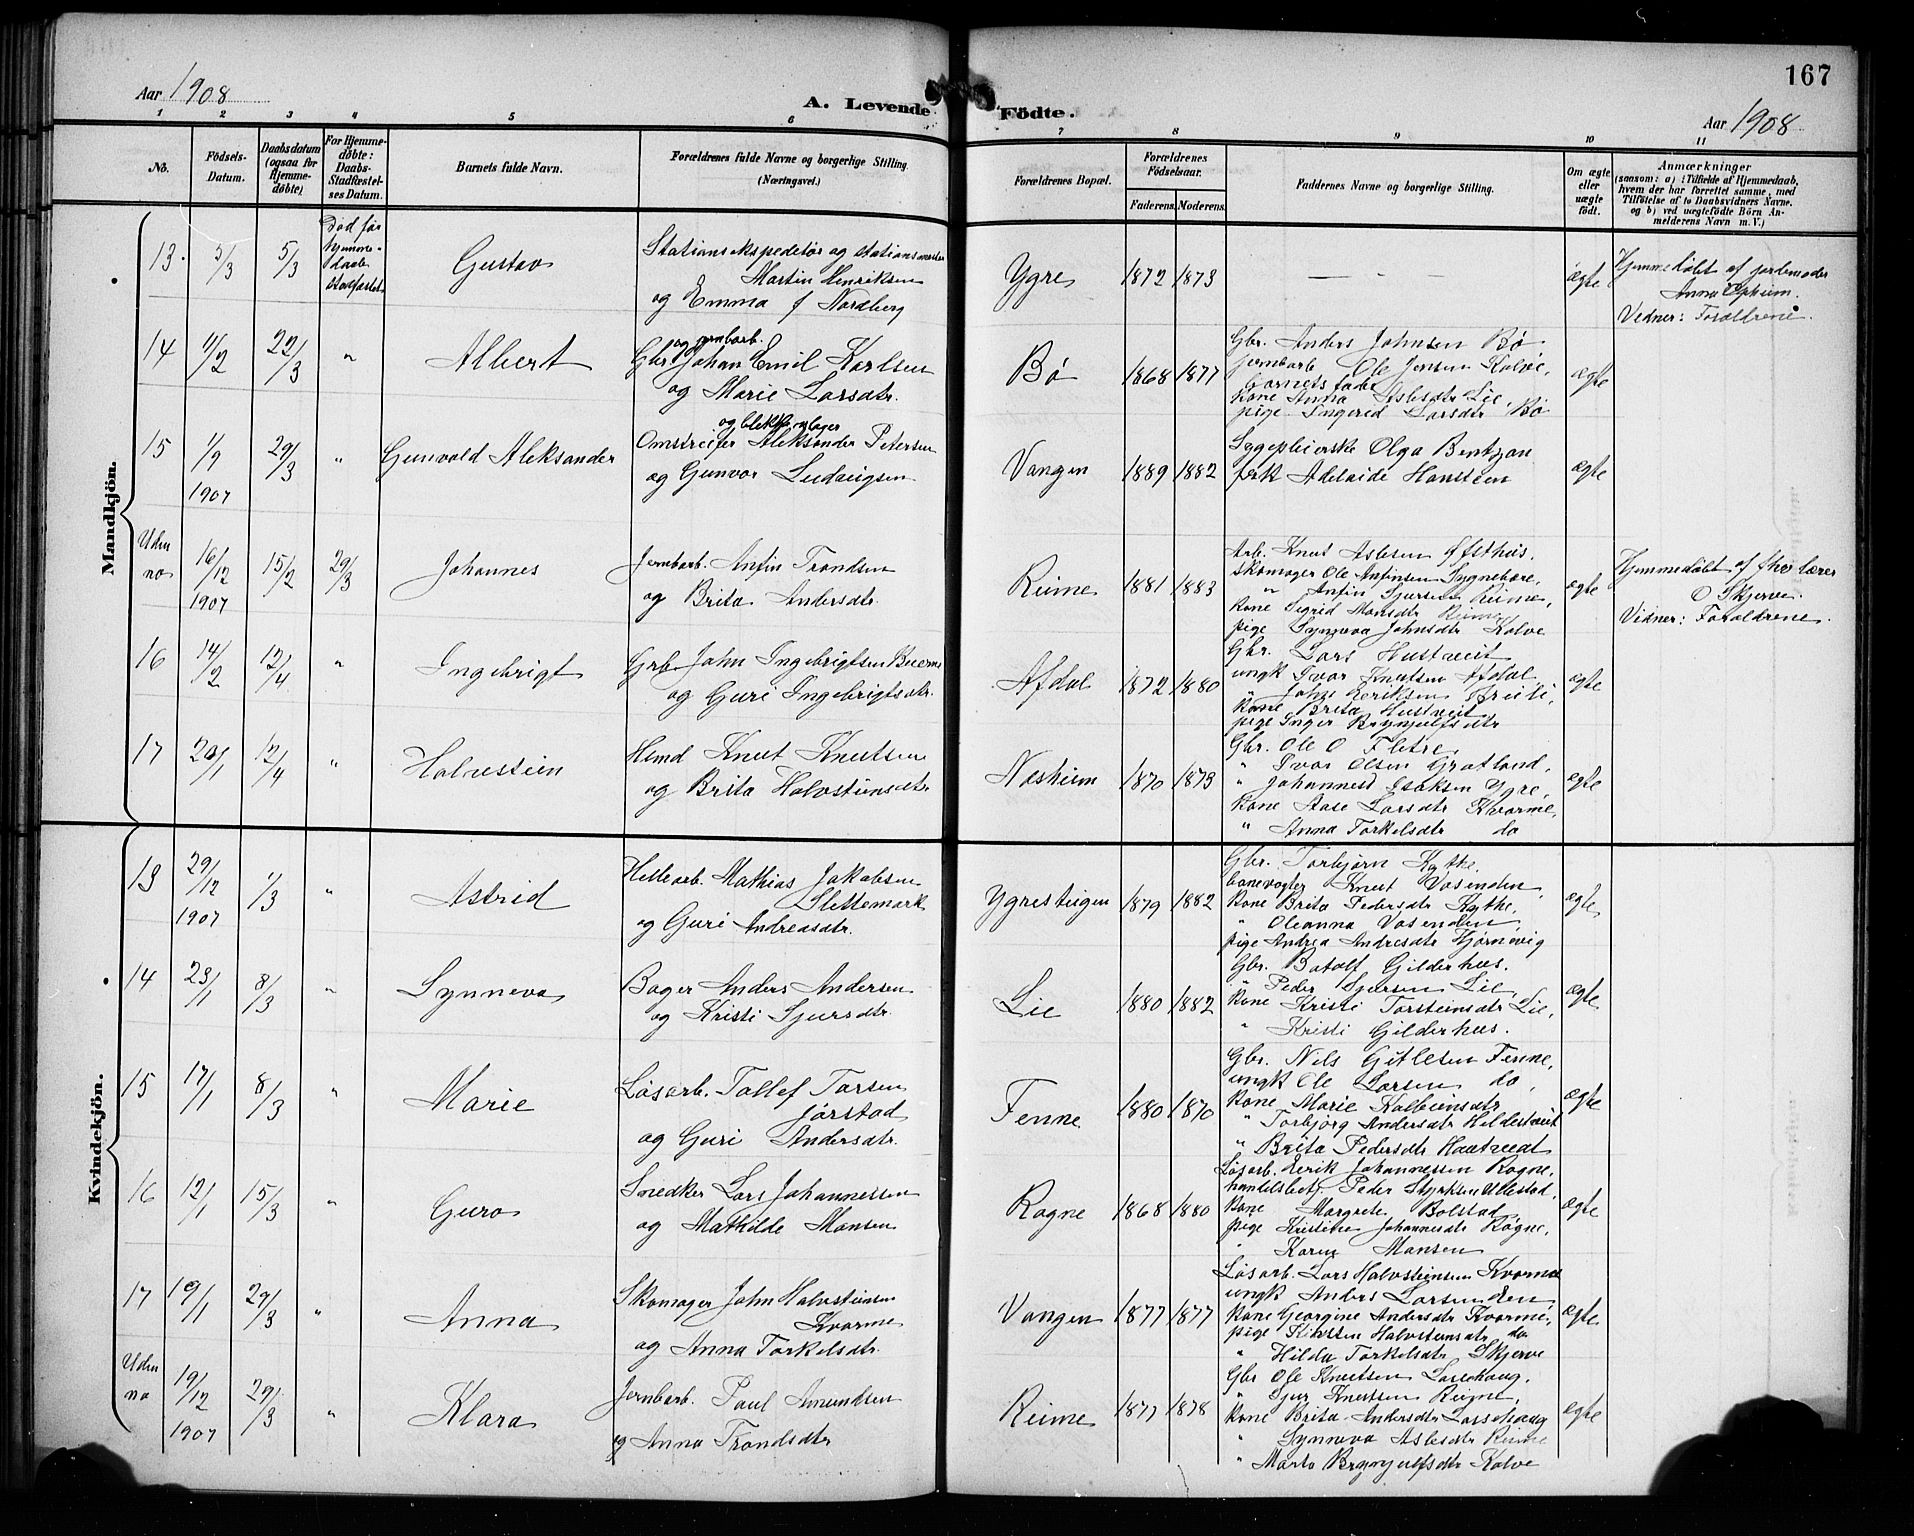 167
Aar 1908
A. Levende Födte.
Aar 1908
1 2 3 4 5 6 7 8 9 10 11
No.
Födsels-
Datum.
Daabsdatum
(ogsaa for
Hjemme-
døbte)
For Hjemme-
døbte:
Daabs-
Stadfæstel-
ses Datum.
Barnets fulde Navn.
Forældrenes fulde Navne og borgerlige Stilling.
(Næringsvei.)
Forældrenes Bopæl.
Forældrenes
Födselsaar.
Faderens. Moderens.
Faddernes Navne og borgerlige Stilling.
Om ægte
eller
uægte
født.
Anmærkninger
(saasom: a) i Tilfælde af Hjemmedaab,
hvem der har forrettet samme, med
Tilföielse af to Daabsvidners Navne.
og b) ved uægtefödte Börn An-
melderens Navn m. V.)
Mandkjön.
13. 5/3 5/3
Död før
hjemme-
daab
stadfæstet
Gustav
Stationsekspeditør og stationsmester
Martin Henriksen
og Emma f Nordberg
Ygre 1872 1873 — — — ægte
Hjemmedøbt af jordemoder
Anna Opheim.
Vidner: Forældrene.
14 11/2 22/3 " Albert
og jernbarb.
Gbr. Johan Emil Karlsen
og Marie Larsdtr.
Bø 1868 1877
Gbr. Anders Johnsen Bø
jernbarb Ole Jensen Kalve,
barnets fader
kone Anna Aslesdtr Lie,
pige Ingerid Larsdtr Bø
ægte
15 1/9 1907 29/3 " Gunvald Aleksander
og blikkenslager
Omstreifer Aleksander Petersen
og Gunvor Ludvigsen
Vangen 1889 1882
Sygepleierske Olga Bentzon
frk Adelaide Hansteen
ægte
Uden no 16/12 1907 15/2 29/3 Johannes
Jernbarb. Anfin Trondsen
og Brita Andersdtr.
Reime 1881 1883
Arb. Knut Aslesen Øfsthus.
skomager Ole Anfinsen Sygnebere,
" Anfin Sjursen Reime,
kone Sigrid Monsdtr Reime
pige Synneva Johnsdtr Kalve
ægte
Hjemmedøbt af fhv lærer
O Skjerve.
Vidner: Forældrene.
16 14/2 12/4 " Ingebrigt
Grb. John Ingebrigtsen
og Guri Ingebrigtsdtr.
Afdal 1872 1880
Gbr. Lars Hustveit
ungk Ivar Knutsen Afdal
" John Eriksen
kone Brita Hustveit
pige Inger Brynjulfsdtr
ægte
17 20/1 12/4 " Halvstein
Hmd Knut Knutsen
og Brita Halvsteinsdtr
Næsheim 1870 1873
Gbr. Ole O Fletre,
" Ivar Olsen Grotland,
" Johannes Isaksen Ygre,
kone Aase Larsdtr Kvarme,
" Anna Torkelsdtr do
ægte
Kvindekjön.
13 29/12 1907 1/3 " Astrid
Hellearb. Mathias Jakobsen
Slettemark
og Guri Andreasdtr.
Ygresteigen 1879 1882
Gbr. Torbjørn Kythe,
banevogter Knut Vasenden,
kone Brita Pedersdtr Kythe,
" Oleanna Vasenden,
pige Andrea Andresdtr Hjørnevig
ægte
14 23/1 8/3 " Synneva
Bager Anders Andersen
og Kristi Sjursdtr.
Lie 1880 1882
Gbr. Botolf Gilderhus.
" Peder Sjursen Lie,
kone Kristi Torsteinsdtr Lie,
" Kristi Gilderhus.
ægte
15 17/1 8/3 " Marie
Løsarb. Tollef Torsen
Jørstad
og Guri Andersdtr.
Fenne 1880 1870
Gbr. Nils Gitlesen Fenne,
ungk Ole Larsen do,
kone Marie Kolbeinsdtr
" Torbjørg Andersdtr Hildestveit
" Brita Pedersdtr Haatveit
ægte
16 12/1 15/3 " Guro
Snedker Lars Johannessen
og Mathilde Monsen
Rogne 1868 1880
Løsarb. Eerik Johannessen Rogne,
handelsbetj. Peder Styrksen Ullestad,
kone Margrete Bolstad
pige Kristine Johannesdtr Rogne,
" Karen Monsen
ægte
17 19/1 29/3 " Anna
Skomager John Halvsteinsen
Kvarme
og Anna Torkelsdtr.
Vangen 1877 1877
Løsarb. Lars Halvsteinsen Kvarme
ungk Anders Larsen Een,
kone Georgine Andersdtr Kvarme,
pige Kirsten Halvsteinsdtr do
" Hilda Torkelsdtr Skjerve
ægte
Uden no 19/12 1907 29/3 " Klara
Jernbarb. Paul Amundsen
og Anna Trondsdtr
Reime 1877 1878
Gbr Ole Knutsen Lassehaug,
" Sjur Knutsen Reime,
kone Brita Andersdtr Lassehaug
" Synneva Aslesdtr Reime
" Marta Brynjulfsdtr Kalve
ægte